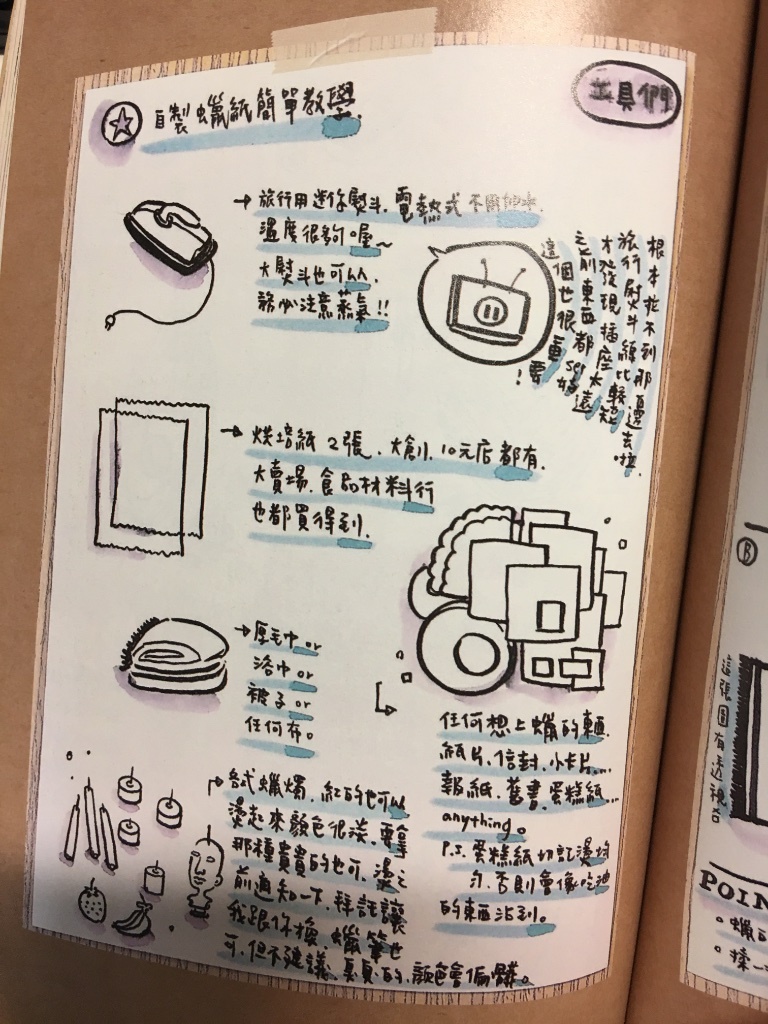 自製蠟紙簡單教學.
工具們
→旅行用迷你熨斗. 電熱式不用加水.
溫度很夠喔~
大熨斗也可以.
務必注意蒸氣!!
根本拉不到那邊去啦.
旅行熨斗線比較短
才發現插座太遠
之前東西都set好
這個也很重要!
→烘培紙 2張. 大創. 10元店都有.
大賣場. 食品材料行
也都買得到.
→厚毛巾 or
浴巾 or
被子 or
任何布。
任何想上蠟的東西.
紙片. 信封. 小卡片...
報紙. 舊書. 蛋糕紙...
anything。
P.S. 蛋糕紙切記燙均
勻. 否則會像吃油
的東西沾到。
各式蠟燭. 紅的也可以
燙起來顏色很淡. 要拿
那種貴貴的也可. 燙之
前通知一下. 拜託讓
我跟你換 蠟筆也
可. 但不建議. 真的. 顏色會偏髒。
B
這張圖有透視
POIN